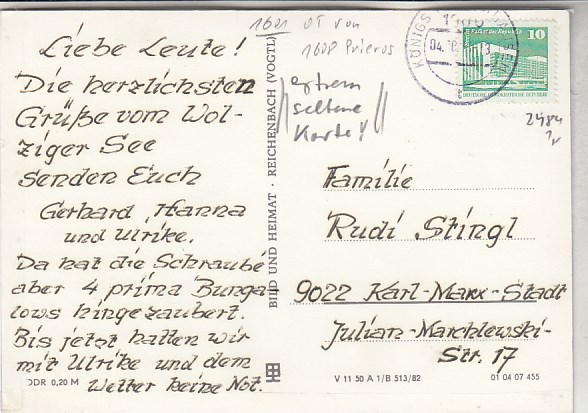 Liebe Leute!
Die herzlichsten
Grüße vom Wol-
ziger See
senden Euch
Gerhard, Hanna
und Ulrike.
Da hat die Schraube
aber 4 prima Bunga-
lows hingezaubert.
Bis jetzt hatten wir
mit Ulrike und dem
Wetter keine Not.
DDR 0,20 M
BILD UND HEIMAT · REICHENBACH (VOGTL)
1621 OT von
1608 Prieros
extrem
seltene
Karte!
KÖNIGS
04.10
10
DEUTSCHE DEMOKRATISCHE REPUBLIK
2484
Familie
Rudi Stingl
9022 Karl-Marx-Stadt
Julian-Marchlewski-
Str. 17
V 11 50 A 1/B 513/82
01 04 07 455